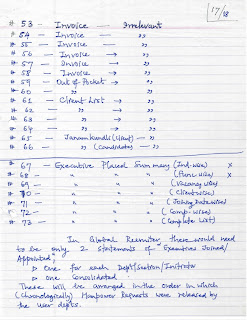 17/18
# 53 - Invoice — Irrelevant
# 54 - Invoice — "
# 55 - Invoice — "
# 56 - Invoice → "
# 57 - Invoice → "
# 58 - Invoice → "
# 59 - Out of Pocket → "
# 60 - " → "
# 61 - Client List → "
# 62 — " → "
# 63 — " → "
# 64 — " → "
# 65 — (Client) — "
# 66 — " (Candidates) — "
# 67 - Executive Placed Summary (Ind.wise) x
# 68 - " " " (Func.wise) x
# 69 - " " " (Vacancy wise)
# 70 - " " " (Clientwise)
# 71 - " " " (Joining Datewise)
# 72 - " " " (Comp-wise)
# 73 - " " " (Complete List)
In Global Recruiter, there would need
to be only 2 statements of "Executives Joined/
Appointed",
▷ One for each Dept/Section/Initiator
▷ One Consolidated.
These will be arranged in the order in which
(chronologically) Manpower Requests were released by
the user depts.